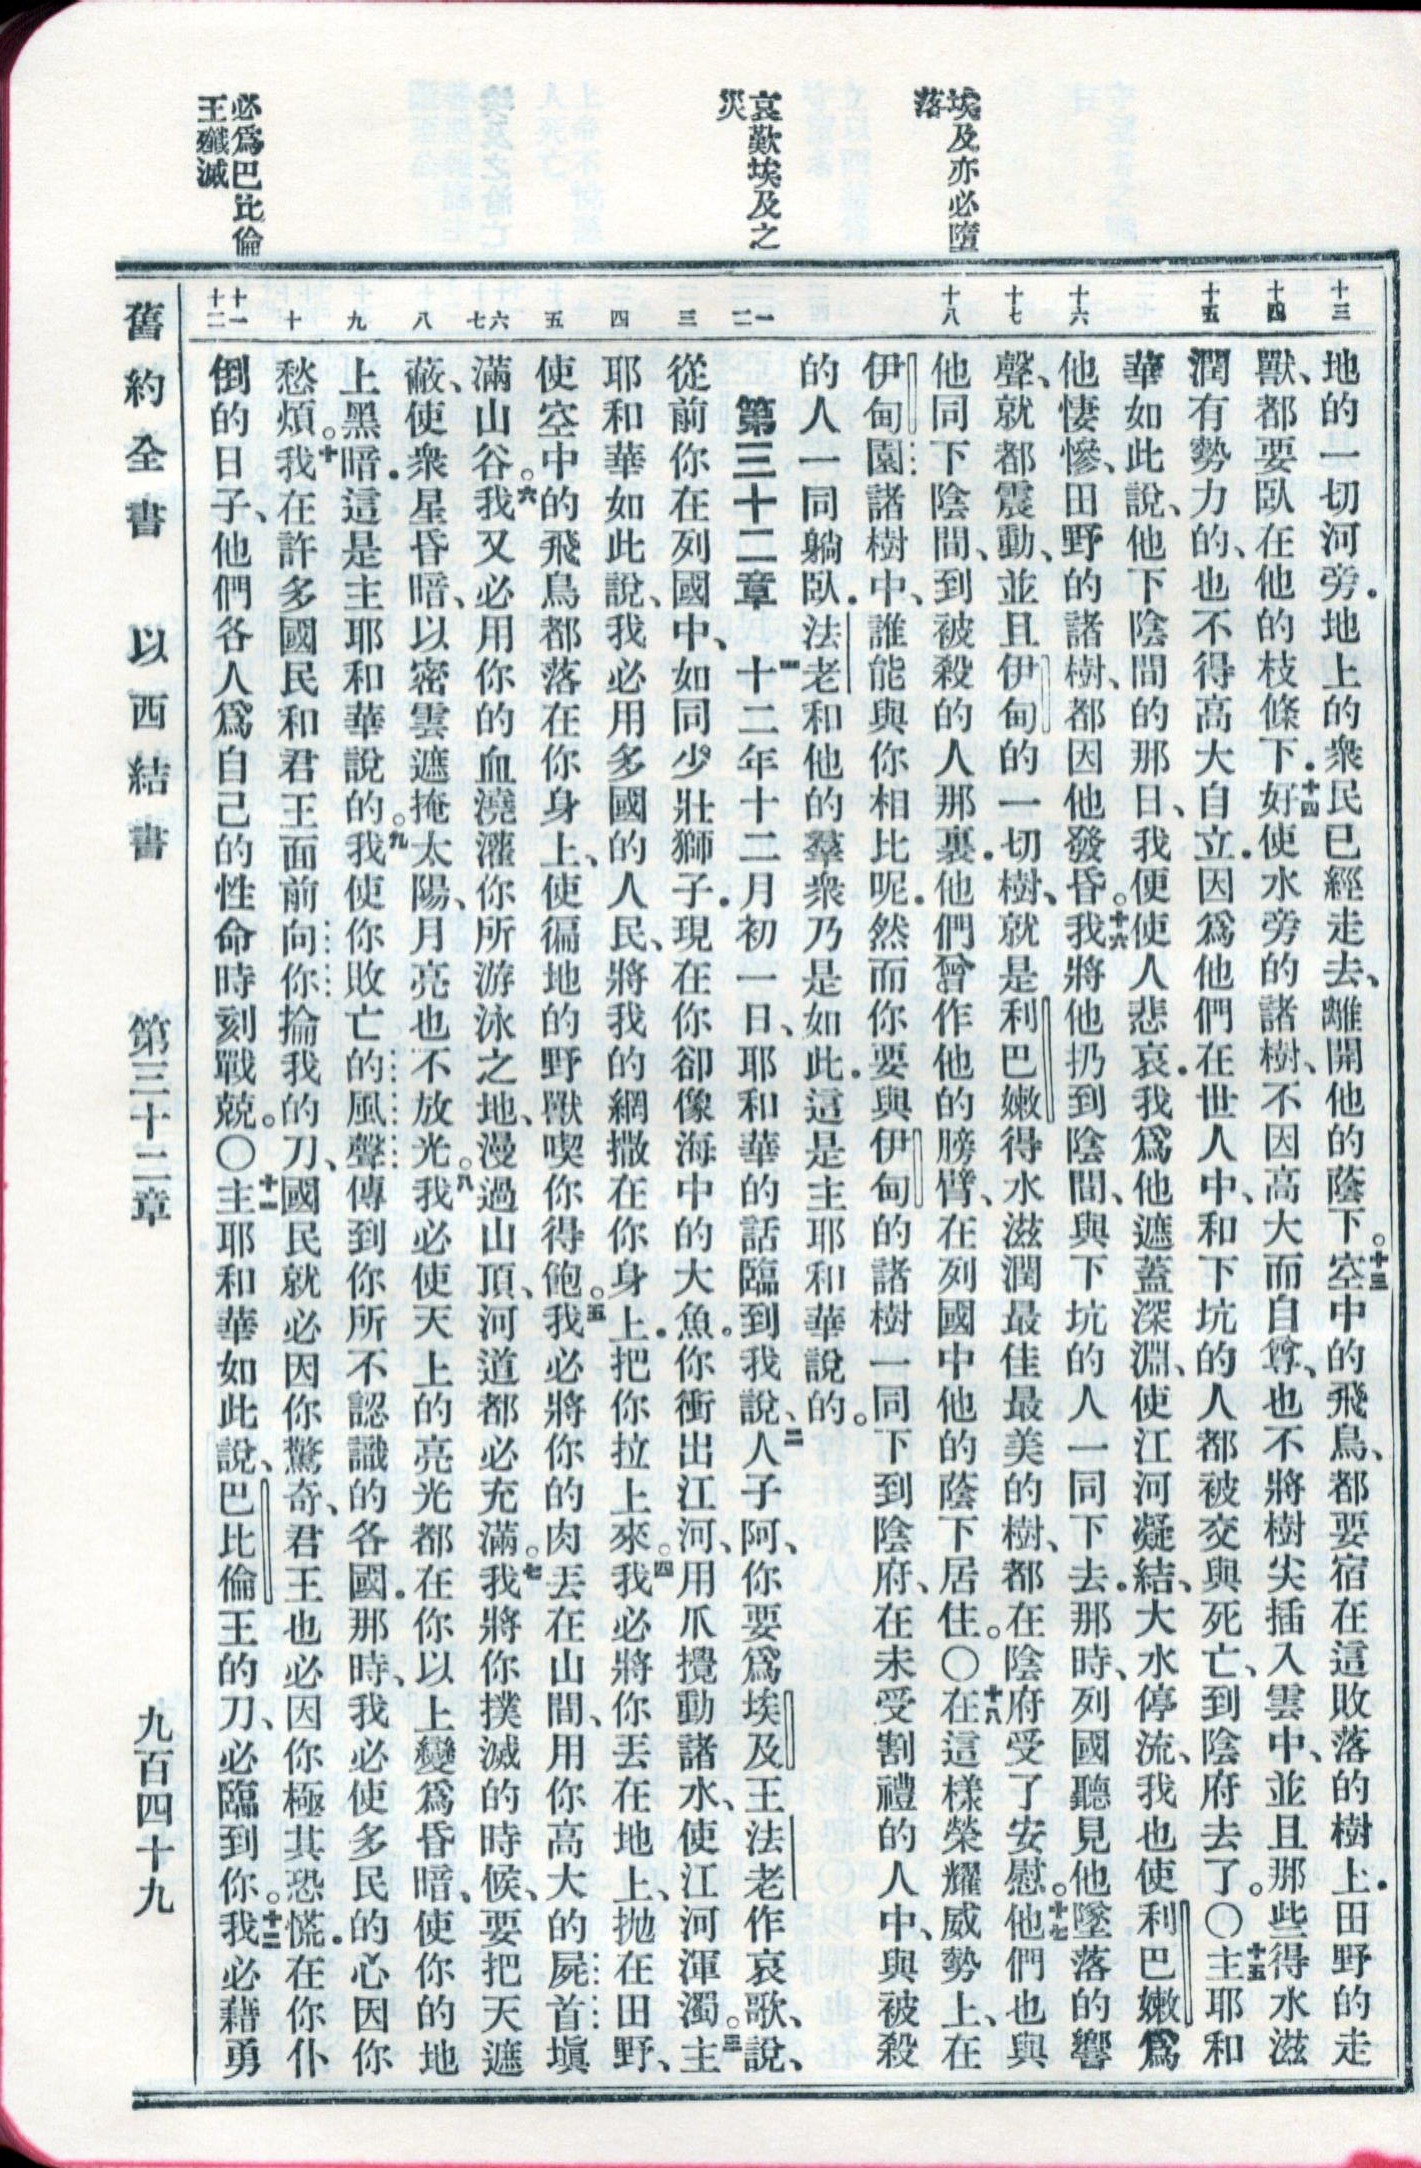 埃及亦必墮
落
哀歎埃及之
災
必爲巴比倫
王殲滅
十三
十四
十五
十六
十七
十八
一
二
三
四
五
六
七
八
九
十
十一
十二
地的一切河旁.地上的衆民已經走去、離開他的蔭下。十三空中的飛鳥、都要宿在這敗落的樹上.田野的走
獸、都要臥在他的枝條下.十四好使水旁的諸樹、不因高大而自尊、也不將樹尖插入雲中、並且那些得水滋
潤有勢力的、也不得高大自立.因爲他們在世人中、和下坑的人都被交與死亡、到陰府去了。〇十五主耶和
華如此說、他下陰間的那日、我便使人悲哀.我爲他遮蓋深淵、使江河凝結、大水停流、我也使利巴嫩爲
他悽慘、田野的諸樹、都因他發昏。十六我將他扔到陰間、與下坑的人一同下去.那時、列國聽見他墜落的響
聲、就都震動、並且伊甸的一切樹、就是利巴嫩得水滋潤最佳最美的樹、都在陰府受了安慰。十七他們也與
他同下陰間、到被殺的人那裏.他們曾作他的膀臂、在列國中他的蔭下居住。〇十八在這樣榮耀威勢上、在
伊甸園諸樹中、誰能與你相比呢.然而你要與伊甸的諸樹一同下到陰府、在未受割禮的人中、與被殺
的人一同躺臥.法老和他的羣衆乃是如此.這是主耶和華說的。
第三十二章 一十二年十二月初一日、耶和華的話臨到我說、二人子阿、你要爲埃及王法老作哀歌、說、
從前你在列國中、如同少壯獅子.現在你卻像海中的大魚.你衝出江河、用爪攪動諸水、使江河渾濁。三主
耶和華如此說、我必用多國的人民、將我的網撒在你身上.把你拉上來。四我必將你丟在地上、抛在田野、
使空中的飛鳥都落在你身上、使徧地的野獸喫你得飽。五我必將你的肉丟在山間、用你高大的屍首塡
滿山谷。六我又必用你的血澆灌你所游泳之地、漫過山頂、河道都必充滿。七我將你撲滅的時候、要把天遮
蔽、使衆星昏暗、以密雲遮掩太陽、月亮也不放光。八我必使天上的亮光都在你以上變爲昏暗、使你的地
上黑暗.這是主耶和華說的。九我使你敗亡的風聲傳到你所不認識的各國.那時、我必使多民的心因你
愁煩。十我在許多國民和君王面前向你掄我的刀、國民就必因你驚奇、君王也必因你極其恐慌.在你仆
倒的日子、他們各人爲自己的性命時刻戰兢。〇十一主耶和華如此說、巴比倫王的刀、必臨到你。十二我必藉勇
舊約全書 以西結書 第三十二章 九百四十九